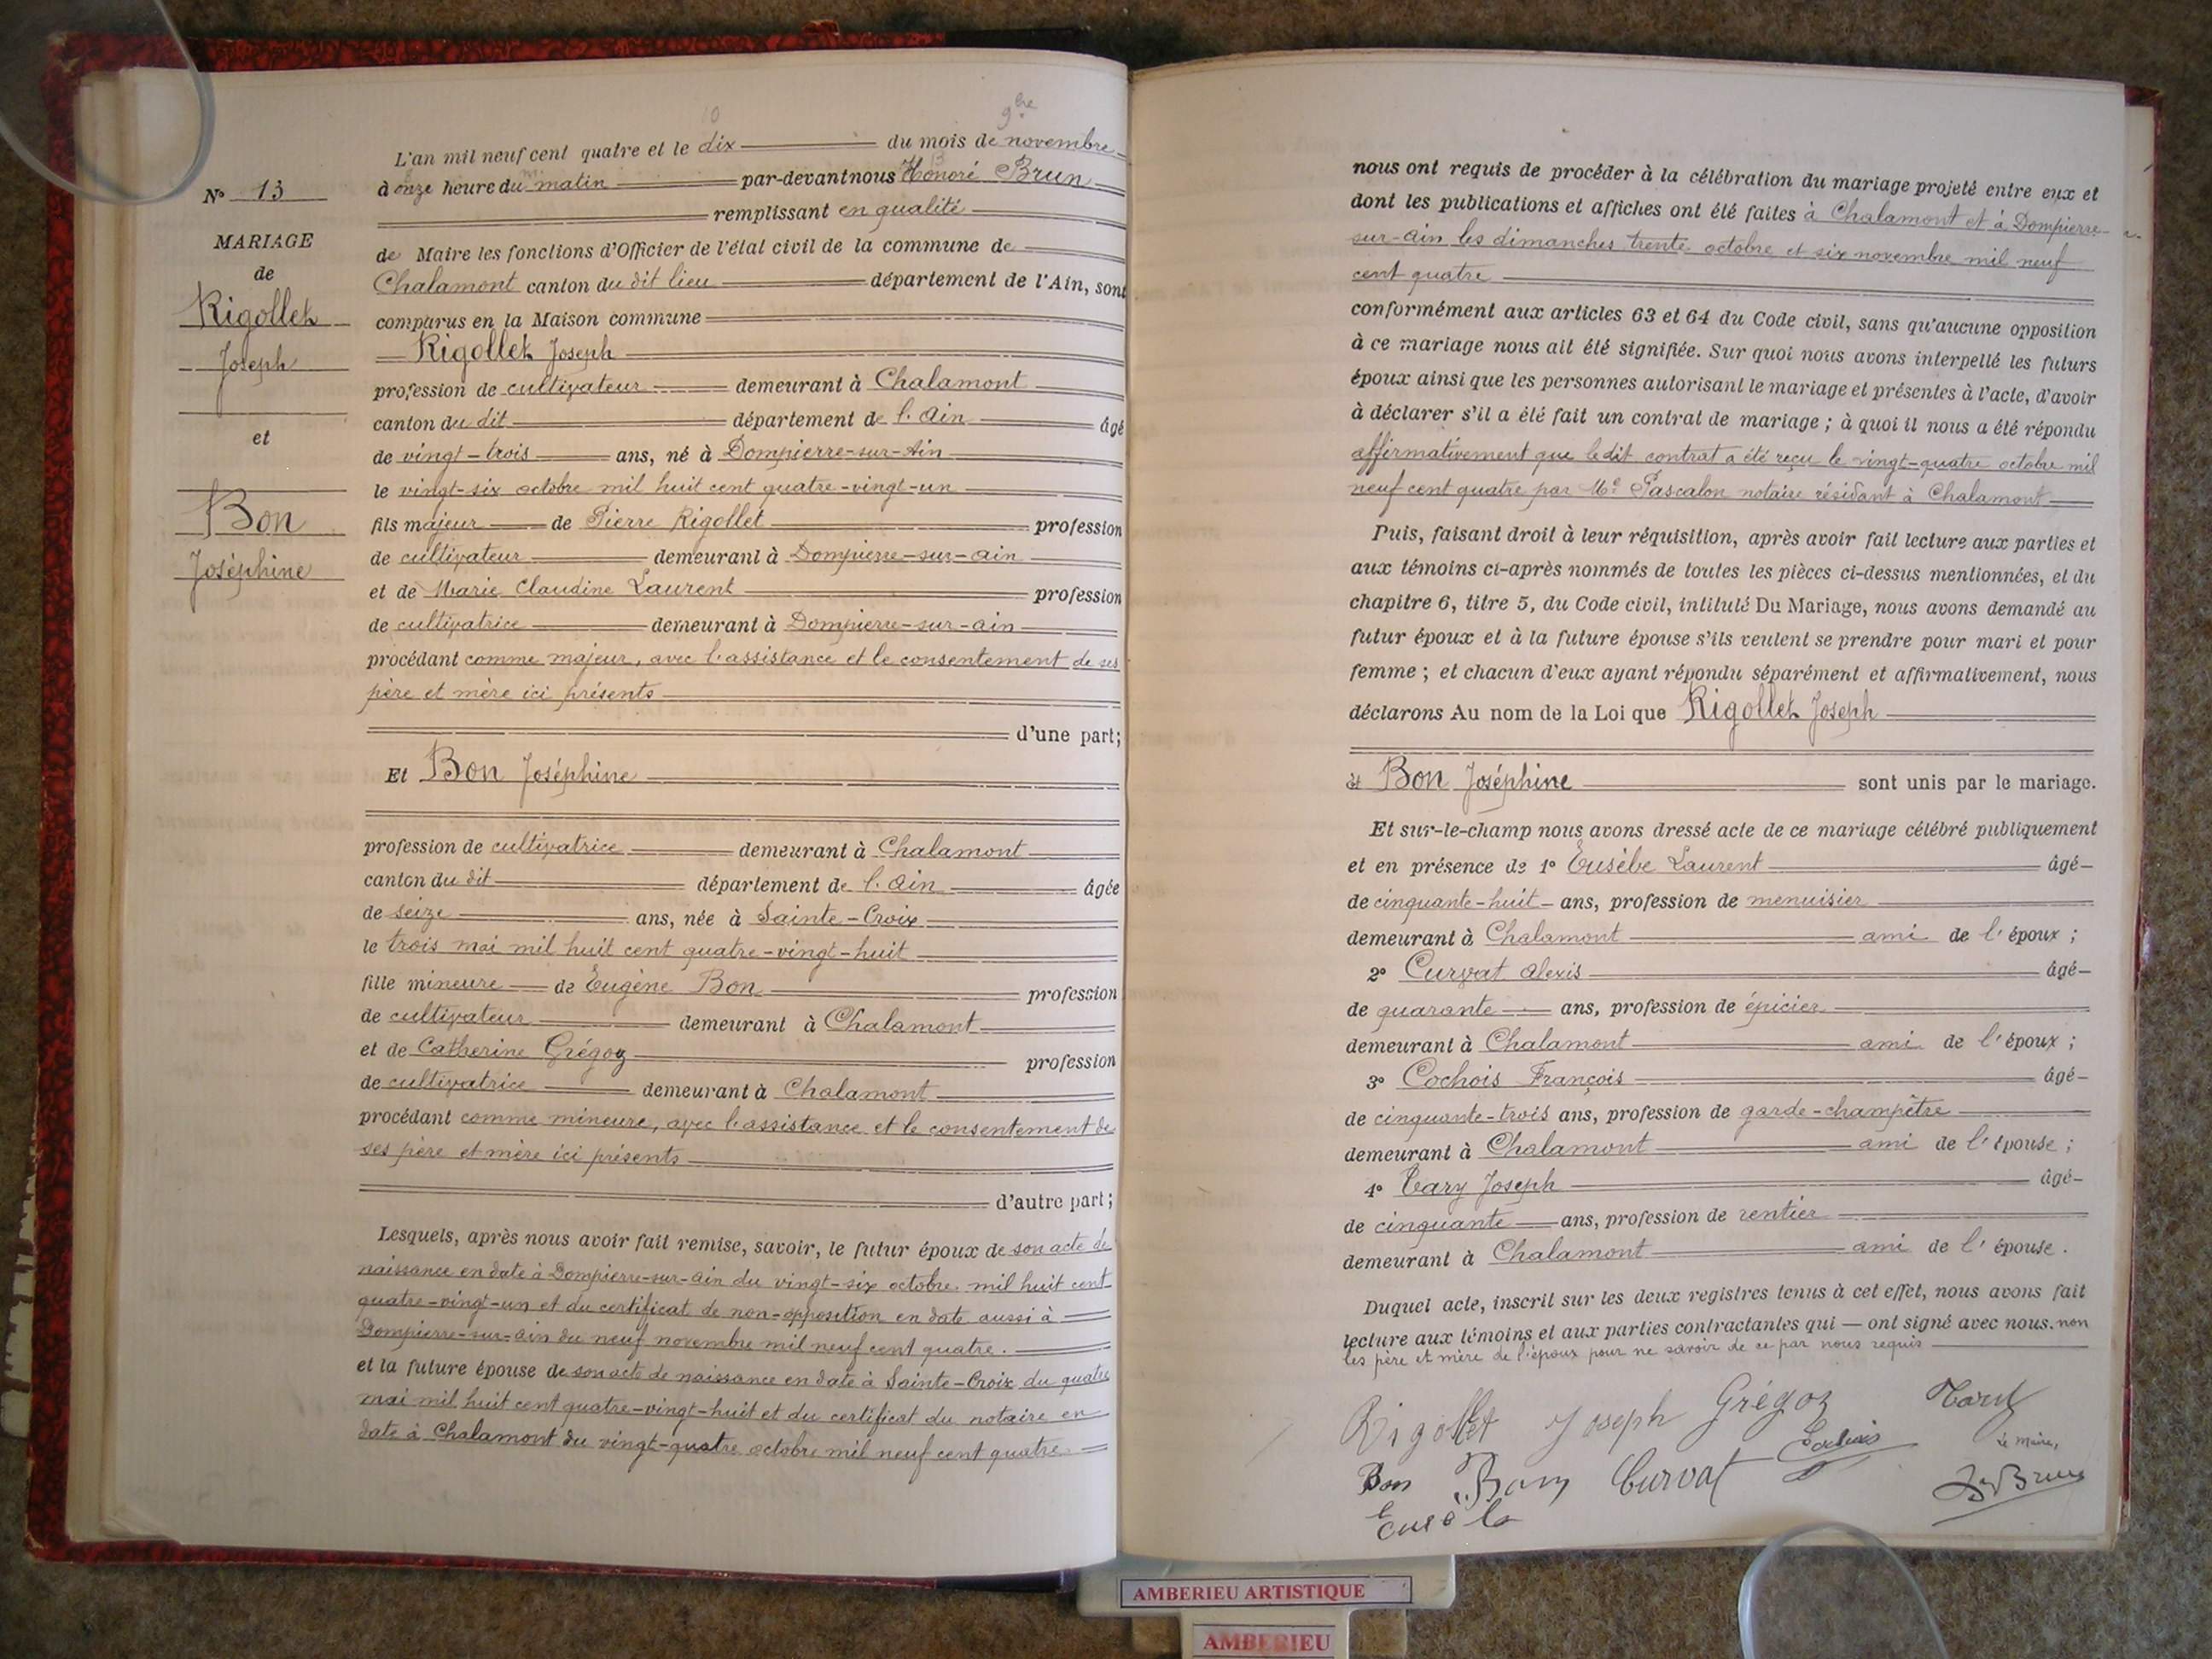 10
9bre
L'an mil neuf cent quatre et le dix du mois de novembre
à onze heure du matin par-devant nous Honoré Brun
N° 13
remplissant en qualité
MARIAGE
de Maire les fonctions d'Officier de l'état civil de la commune de
de
Chalamont canton du dit lieu département de l'Ain, sont
Rigollet
comparus en la Maison commune
Rigollet Joseph
Joseph
profession de cultivateur demeurant à Chalamont
canton du dit département de l'Ain âgé
et
de vingt-trois ans, né à Dompierre-sur-Ain
le vingt-six octobre mil huit cent quatre-vingt-un
Bon
fils majeur de Pierre Rigollet profession
de cultivateur demeurant à Dompierre-sur-ain
Joséphine
et de Marie Claudine Laurent profession
de cultivatrice demeurant à Dompierre-sur-ain
procédant comme majeur, avec l'assistance et le consentement de ses
père et mère ici présents
d'une part;
Et Bon Joséphine
profession de cultivatrice demeurant à Chalamont
canton du dit département de l'Ain âgée
de seize ans, née à Sainte-Croix
le trois mai mil huit cent quatre-vingt-huit
fille mineure de Eugène Bon profession
de cultivateur demeurant à Chalamont
et de Catherine Grégoz profession
de cultivatrice demeurant à Chalamont
procédant comme mineure, avec l'assistance et le consentement de
ses père et mère ici présents
d'autre part;
Lesquels, après nous avoir fait remise, savoir, le futur époux de son acte de
naissance en date à Dompierre-sur-ain du vingt-six octobre mil huit cent
quatre-vingt-un et du certificat de non-opposition en date aussi à
Dompierre-sur-ain du neuf novembre mil neuf cent quatre.
et la future épouse de son acte de naissance en date à Sainte-Croix du quatre
mai mil huit cent quatre-vingt-huit et du certificat du notaire en
date à Chalamont du vingt-quatre octobre mil neuf cent quatre
nous ont requis de procéder à la célébration du mariage projeté entre eux et
dont les publications et affiches ont été faites à Chalamont et à Dompierre-
sur-ain les dimanches trente octobre et six novembre mil neuf
cent quatre
conformément aux articles 63 et 64 du Code civil, sans qu'aucune opposition
à ce mariage nous ait été signifiée. Sur quoi nous avons interpellé les futurs
époux ainsi que les personnes autorisant le mariage et présentes à l'acte, d'avoir
à déclarer s'il a été fait un contrat de mariage ; à quoi il nous a été répondu
affirmativement que ledit contrat a été reçu le vingt-quatre octobre mil
neuf cent quatre par Me Pascalon notaire résidant à Chalamont
Puis, faisant droit à leur réquisition, après avoir fait lecture aux parties et
aux témoins ci-après nommés de toutes les pièces ci-dessus mentionnées, et du
chapitre 6, titre 5, du Code civil, intitulé Du Mariage, nous avons demandé au
futur époux et à la future épouse s'ils veulent se prendre pour mari et pour
femme ; et chacun d'eux ayant répondu séparément et affirmativement, nous
déclarons Au nom de la Loi que Rigollet Joseph
et Bon Joséphine sont unis par le mariage.
Et sur-le-champ nous avons dressé acte de ce mariage célébré publiquement
et en présence de 1° Eusèbe Laurent âgé
de cinquante-huit ans, profession de menuisier
demeurant à Chalamont ami de l'époux ;
2° Curvat Alexis âgé
de quarante ans, profession de épicier
demeurant à Chalamont ami de l'époux ;
3° Cochois François âgé
de cinquante-trois ans, profession de garde-champêtre
demeurant à Chalamont ami de l'épouse ;
4° Tary Joseph âgé
de cinquante ans, profession de rentier
demeurant à Chalamont ami de l'épouse.
Duquel acte, inscrit sur les deux registres tenus à cet effet, nous avons fait
lecture aux témoins et aux parties contractantes qui — ont signé avec nous. non
les père et mère de l'époux pour ne savoir de ce par nous requis
Rigollet Joseph Grégoz
Cochois
Le Maire,
Bon Bon Curvat
Brun
AMBERIEU ARTISTIQUE
AMBERIEU